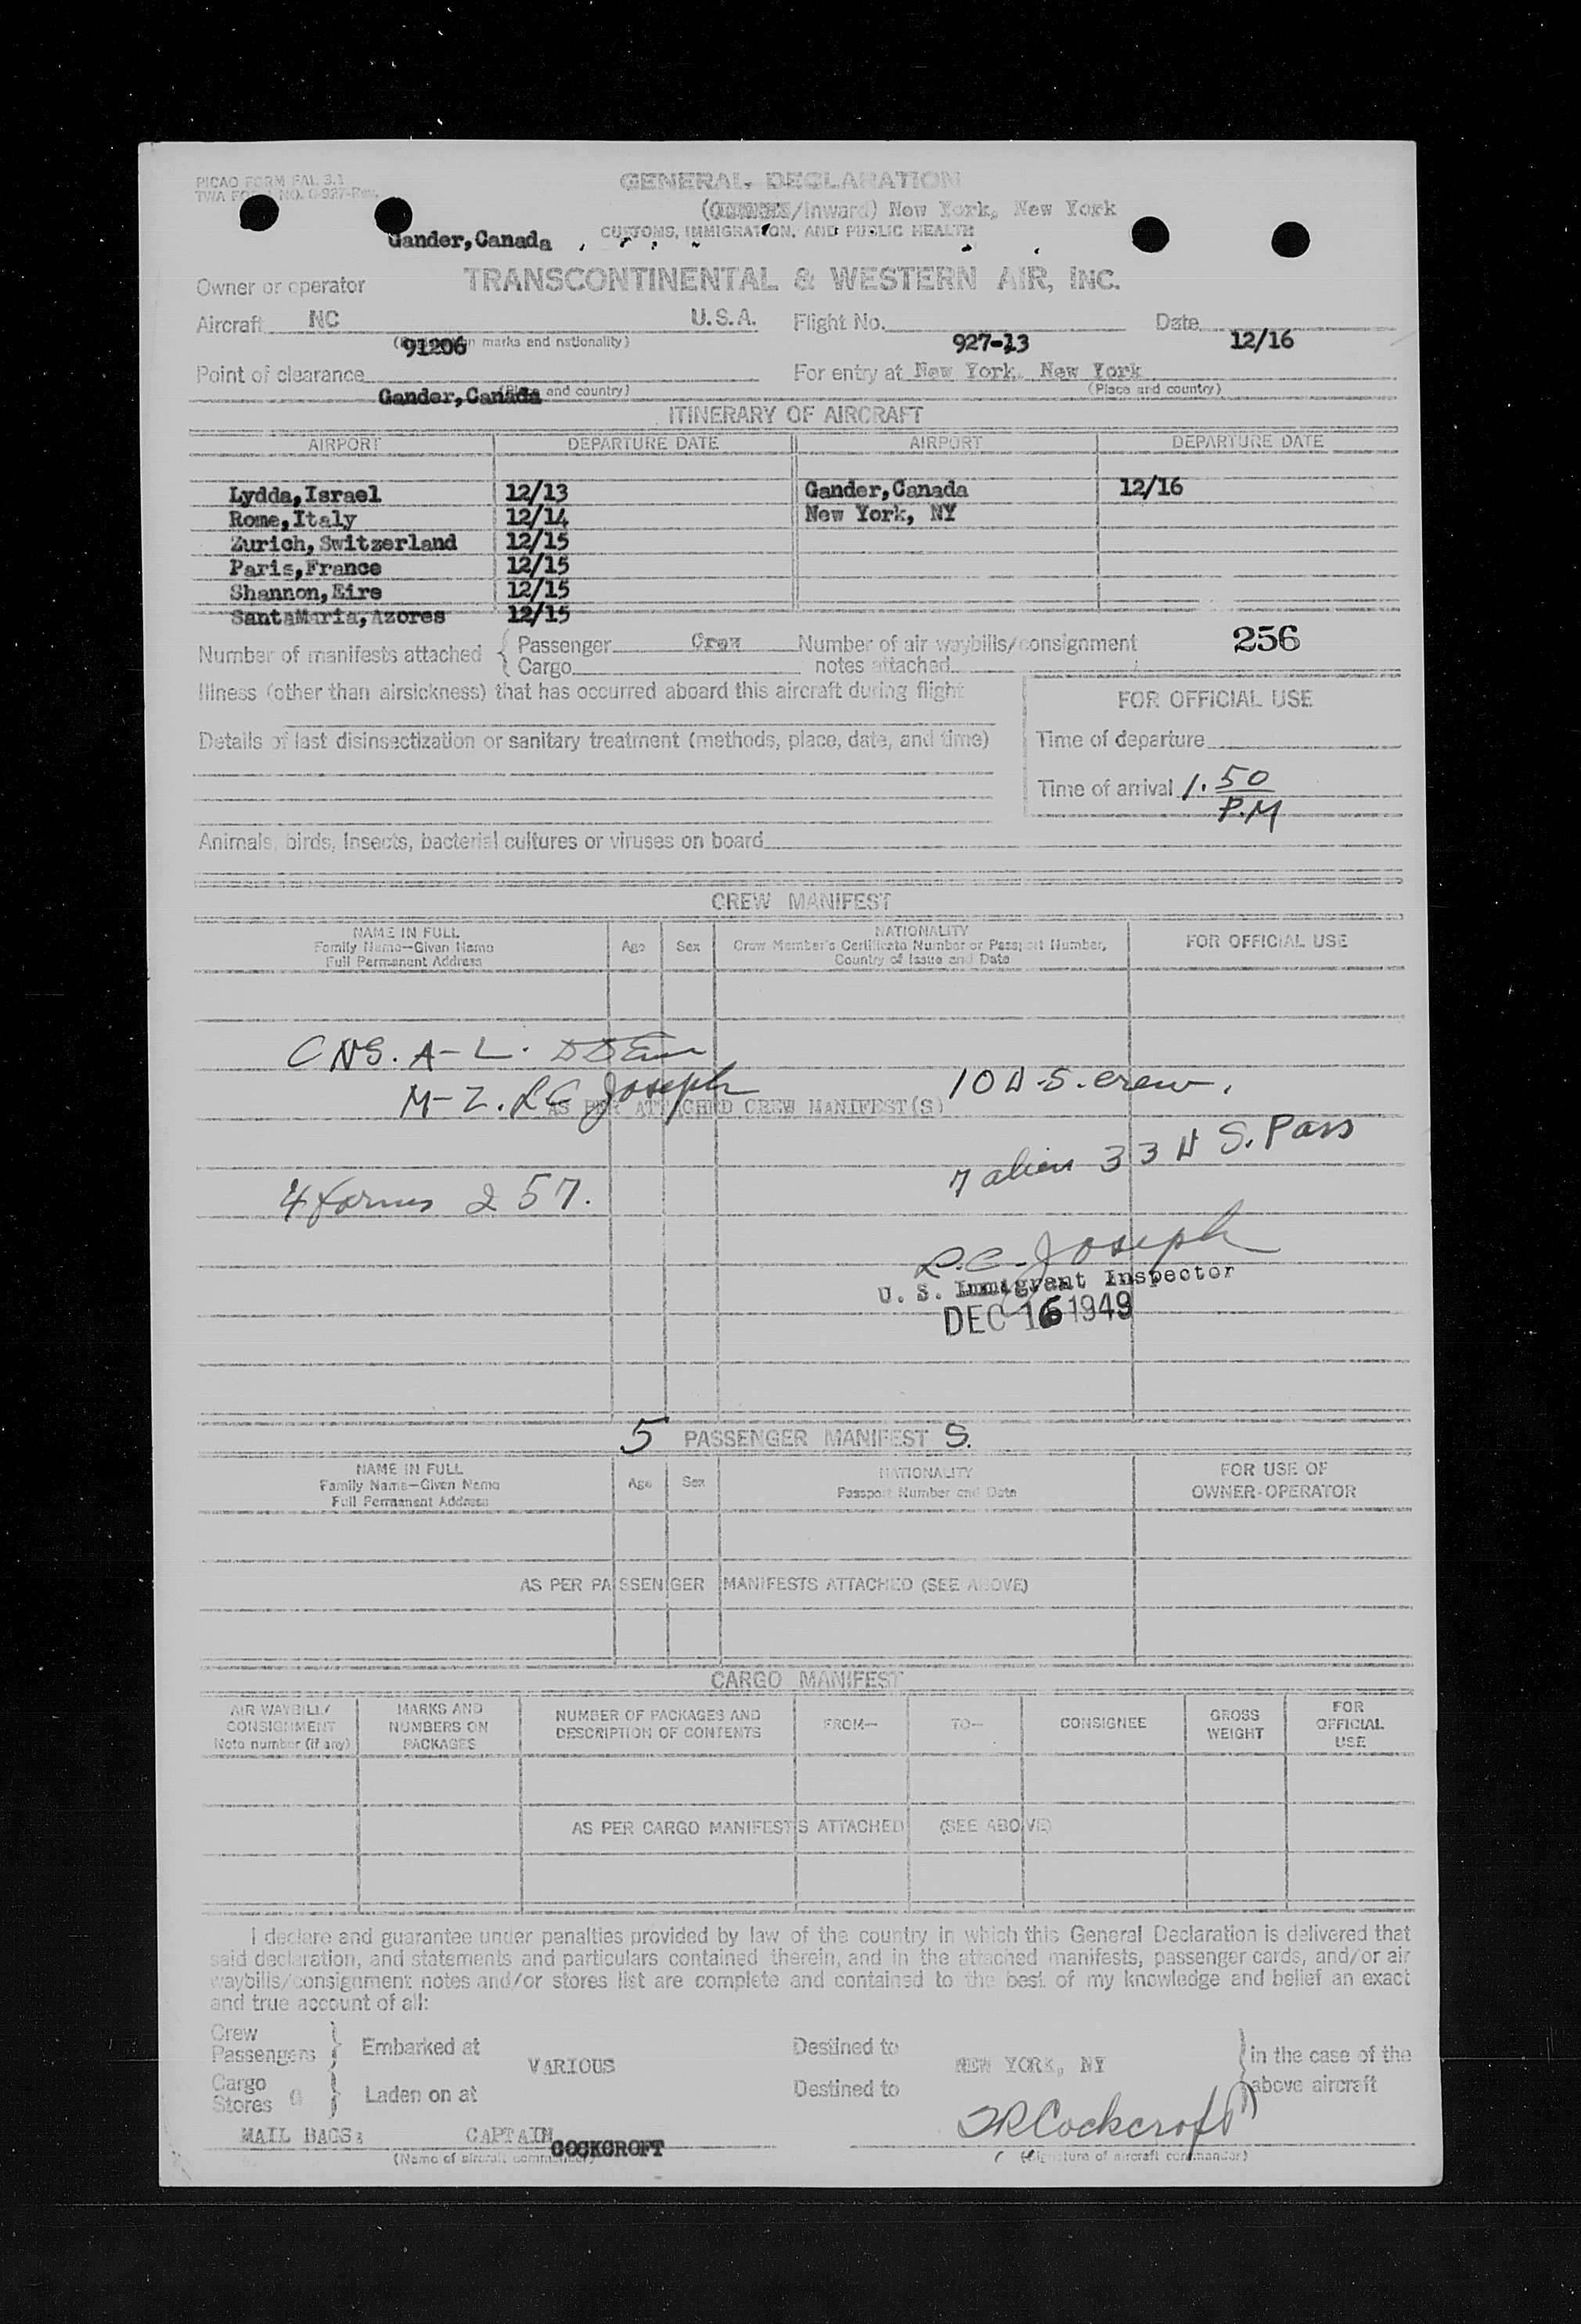 PICAO FORM FAL 3.1
TWA FORM NO. 0-927-Rev.
GENERAL DECLARATION
(/Inward) New York, New York
CUSTOMS, IMMIGRATION, AND PUBLIC HEALTH
Gander,Canada
Owner or operator TRANSCONTINENTAL & WESTERN AIR, INC.
Aircraft NC U.S.A. Flight No. Date
91206 marks and nationality) 927-13 12/16
Point of clearance For entry at New York, New York
Gander,Canada (Place and country) (Place and country)
ITINERARY OF AIRCRAFT
AIRPORT DEPARTURE DATE AIRPORT DEPARTURE DATE
Lydda,Israel 12/13 Gander,Canada 12/16
Rome,Italy 12/14 New York, NY
Zurich,Switzerland 12/15
Paris,France 12/15
Shannon,Eire 12/15
SantaMaria,Azores 12/15
Number of manifests attached { Passenger Crew Number of air waybills/consignment 256
Cargo notes attached
Illness (other than airsickness) that has occurred aboard this aircraft during flight
FOR OFFICIAL USE
Details of last disinsectization or sanitary treatment (methods, place, date, and time)
Time of departure
Time of arrival 1.50
P.M
Animals, birds, insects, bacterial cultures or viruses on board
CREW MANIFEST
NAME IN FULL
Family Name—Given Name
Full Permanent Address
Age Sex
NATIONALITY
Crew Member's Certificate Number or Passport Number,
Country of Issue and Date
FOR OFFICIAL USE
CNS. A-L.
M-Z. LC Joseph 10 U.S. crew.
AS PER ATTACHED CREW MANIFEST(S)
7 alien 33 U S. Pass
4 forms 257.
L.C. Joseph
U. S. Immigrant Inspector
DEC 16 1949
5 PASSENGER MANIFEST S.
NAME IN FULL
Family Name—Given Name
Full Permanent Address
Age Sex
NATIONALITY
Passport Number and Date
FOR USE OF
OWNER-OPERATOR
AS PER PASSENGER MANIFESTS ATTACHED (SEE ABOVE)
CARGO MANIFEST
AIR WAYBILL/
CONSIGNMENT
Note number (if any)
MARKS AND
NUMBERS ON
PACKAGES
NUMBER OF PACKAGES AND
DESCRIPTION OF CONTENTS
FROM—
TO—
CONSIGNEE
GROSS
WEIGHT
FOR
OFFICIAL
USE
AS PER CARGO MANIFESTS ATTACHED (SEE ABOVE)
I declare and guarantee under penalties provided by law of the country in which this General Declaration is delivered that
said declaration, and statements and particulars contained therein, and in the attached manifests, passenger cards, and/or air
waybills/consignment notes and/or stores list are complete and contained to the best of my knowledge and belief an exact
and true account of all:
Crew
Passengers } Embarked at VARIOUS Destined to NEW YORK, NY } in the case of the
Cargo
Stores 0 } Laden on at Destined to above aircraft
MAIL BAGS: CAPTAIN COCKCROFT Cockcroft
(Name of aircraft commander) (Signature of aircraft commander)